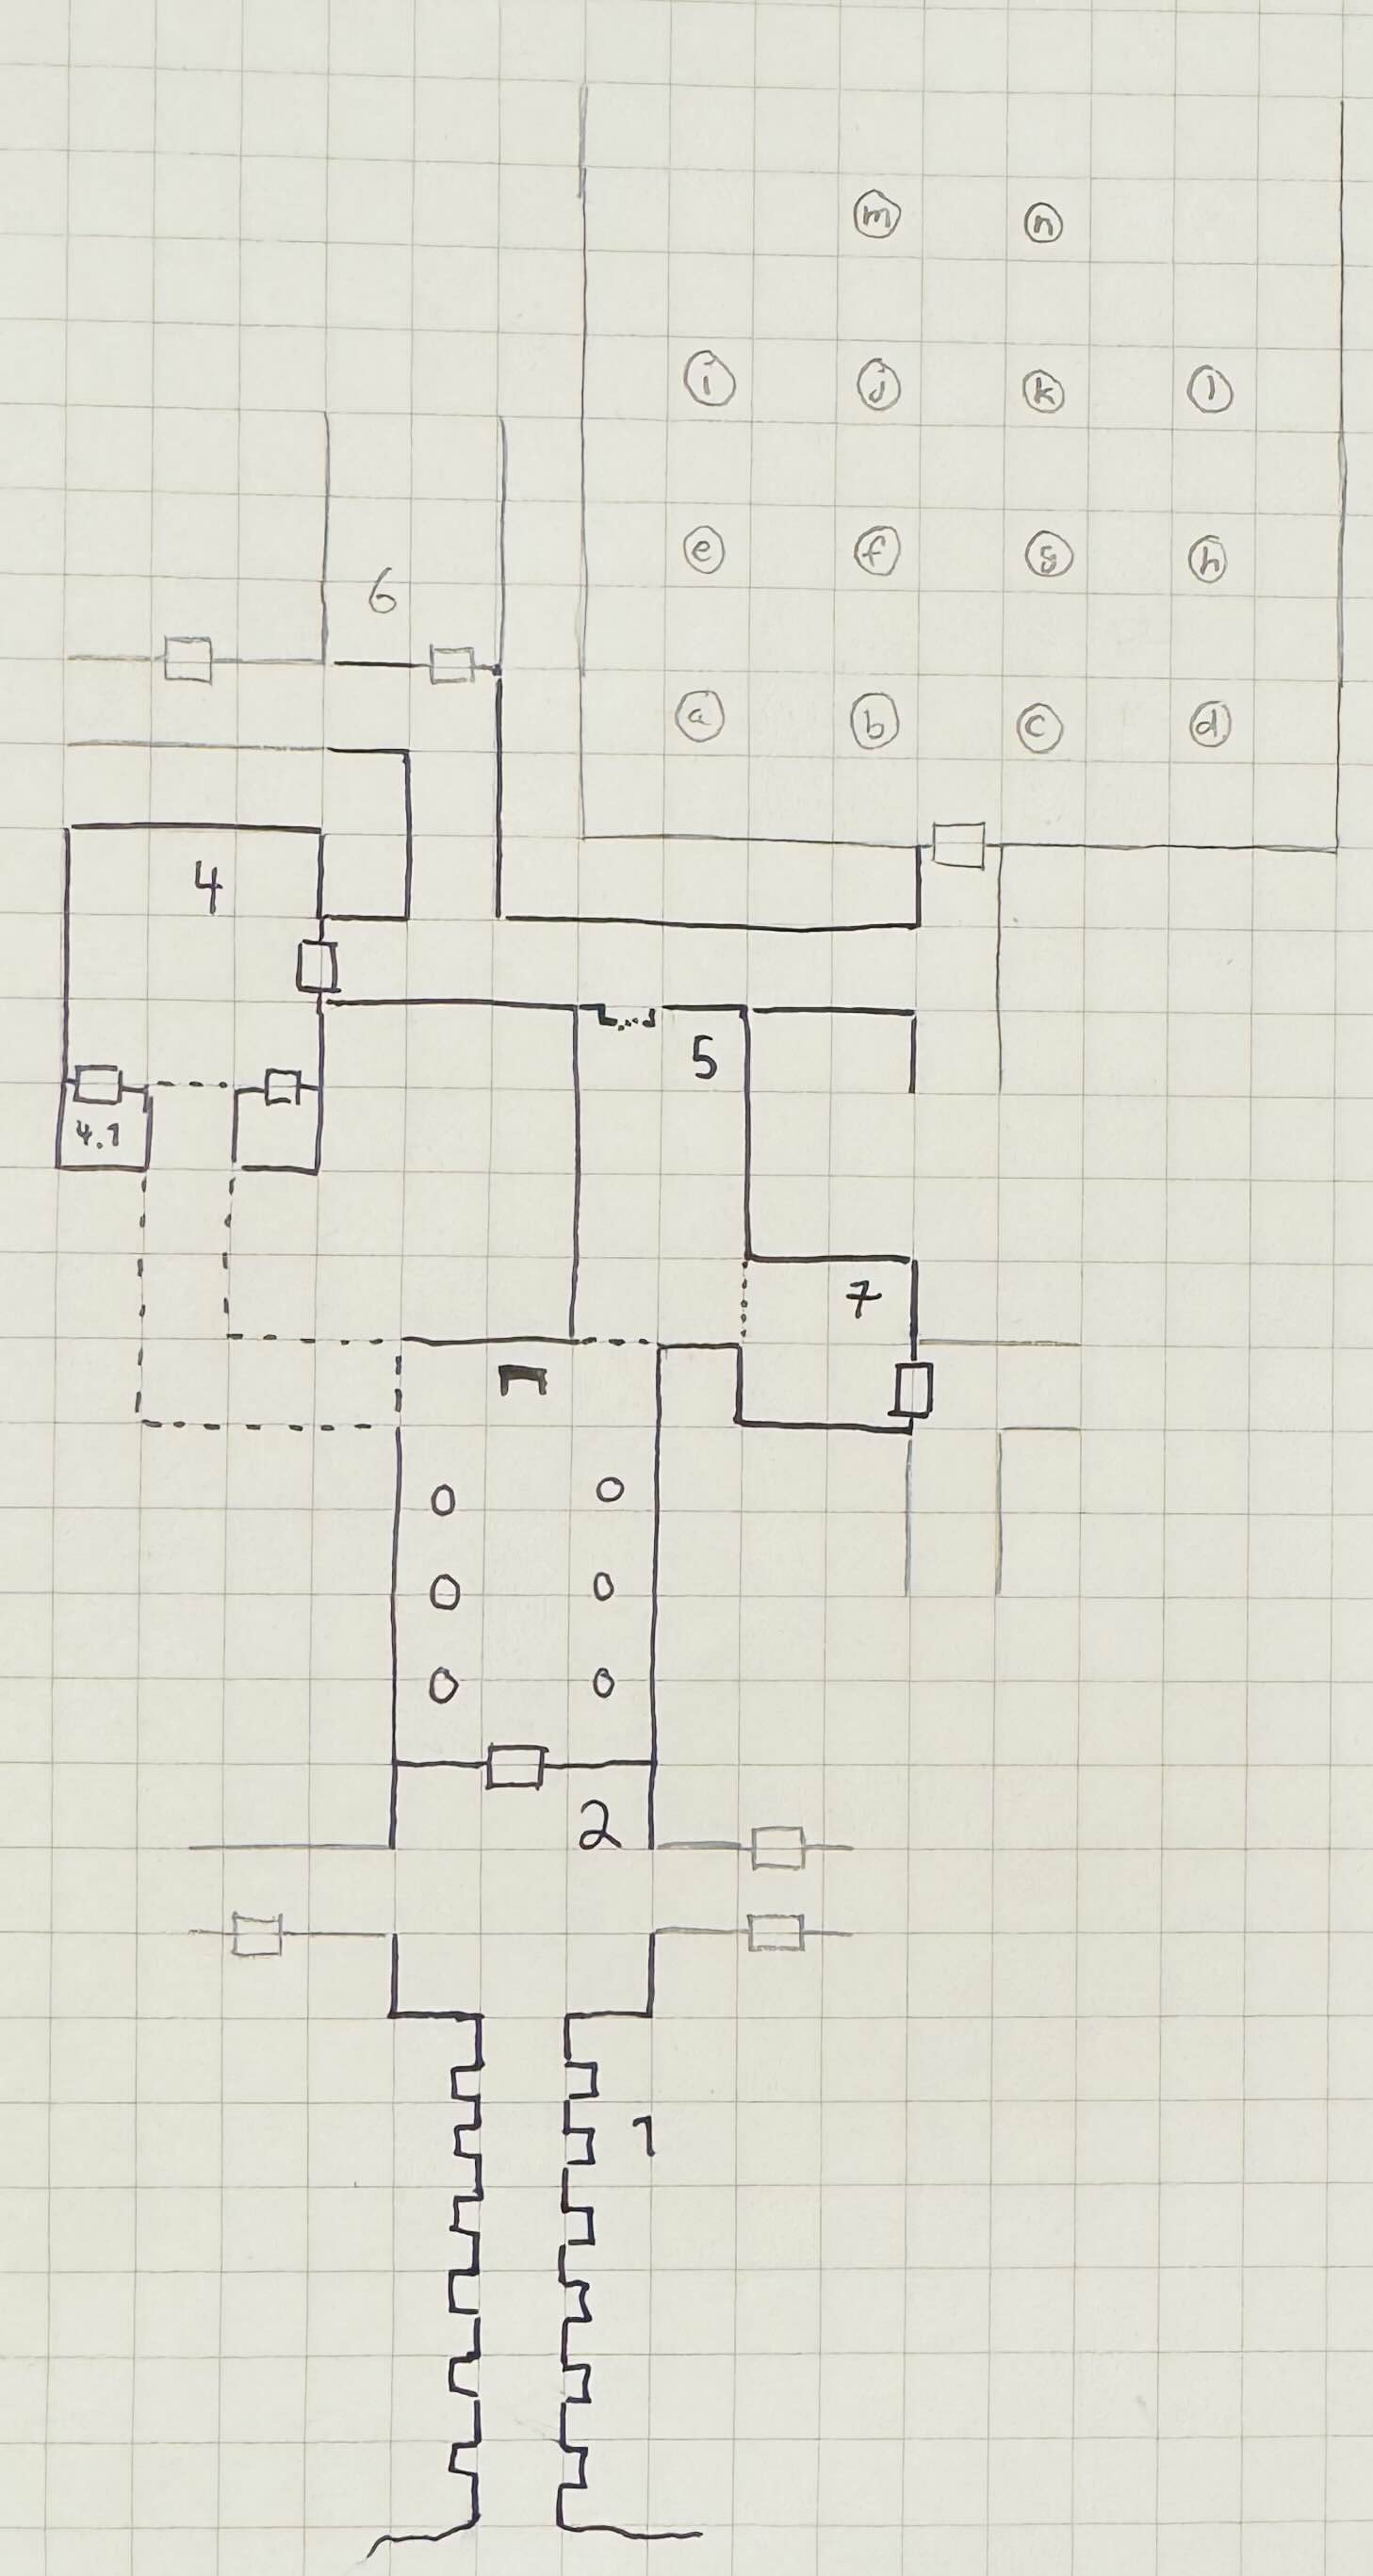 m n
i j k l
e f g h
6
a b c d
4
5
4.1
7
2
1